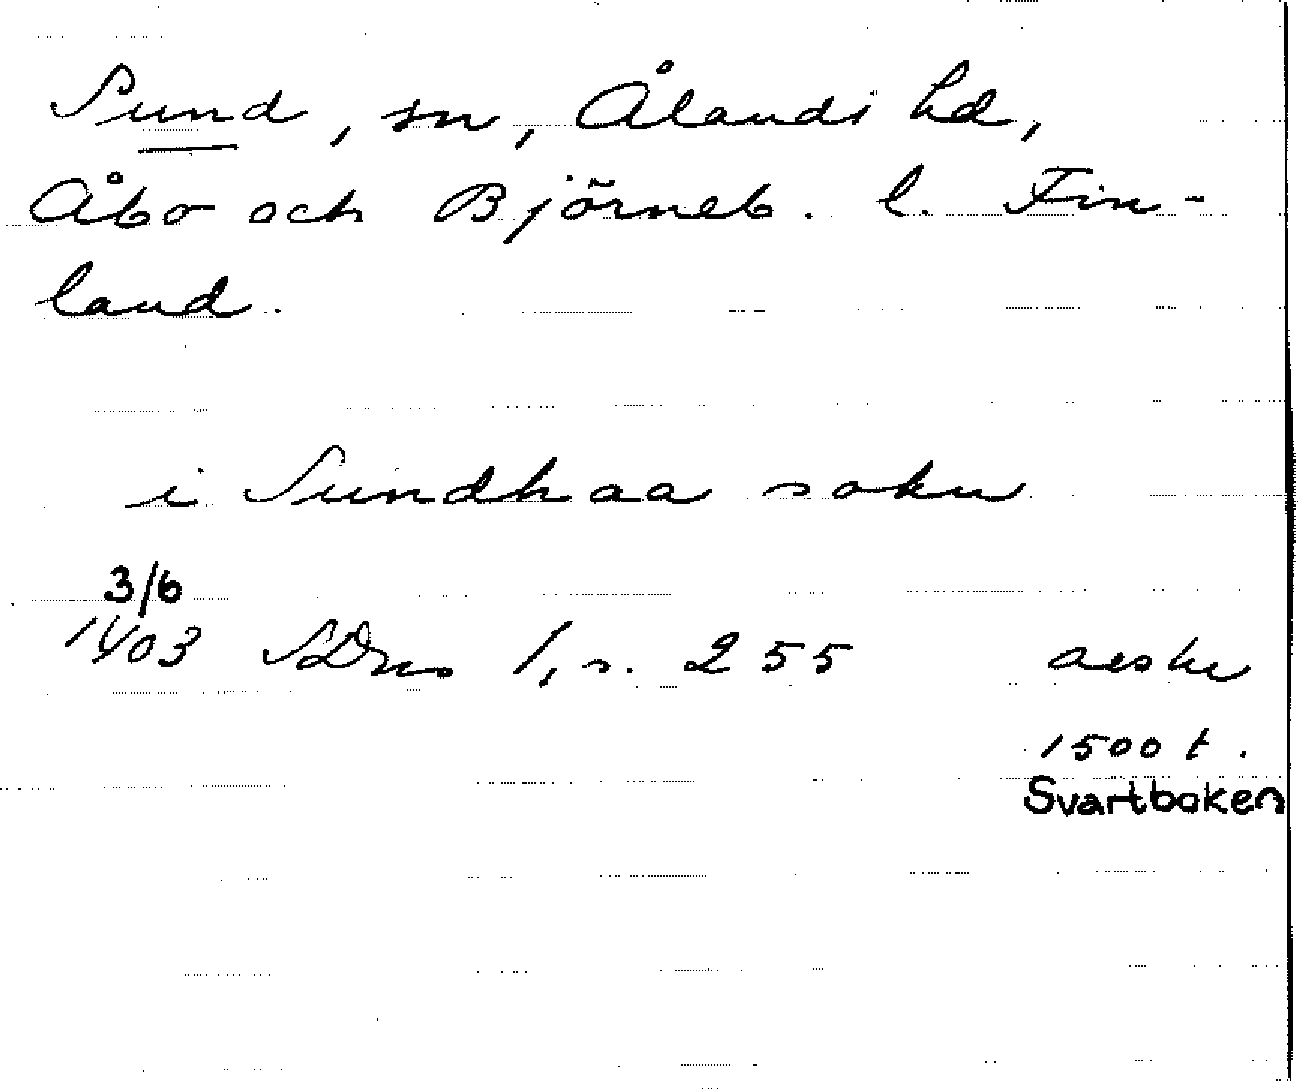 Sund, sn, Ålands hd,
Åbo och Björneb. l. Fin-
land.
i Sundhaa sokn
3/6
1403 SDns 1, s. 255 aeskr
1500 t.
Svartboken